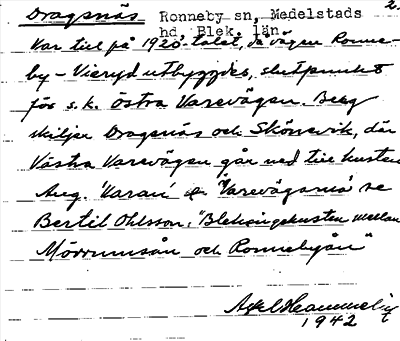 Dragsnäs Ronneby sn, Medelstads 2.
hd, Blek. län.
Var till på 1920-talet, då vägen Ronne-
by – Vieryd utbyggdes, slutpunkt
för s.k. östra Varevägen. Berg
skiljer Dragsnäs och Skönevik, där
Västra Varevägen går ned till kusten
Ang. 'Varan' o. 'Varevägarna' se
Bertil Ohlsson: "Blekingekusten mellan
Mörrumsån och Ronnebyån"
Axel Hammelig
1942